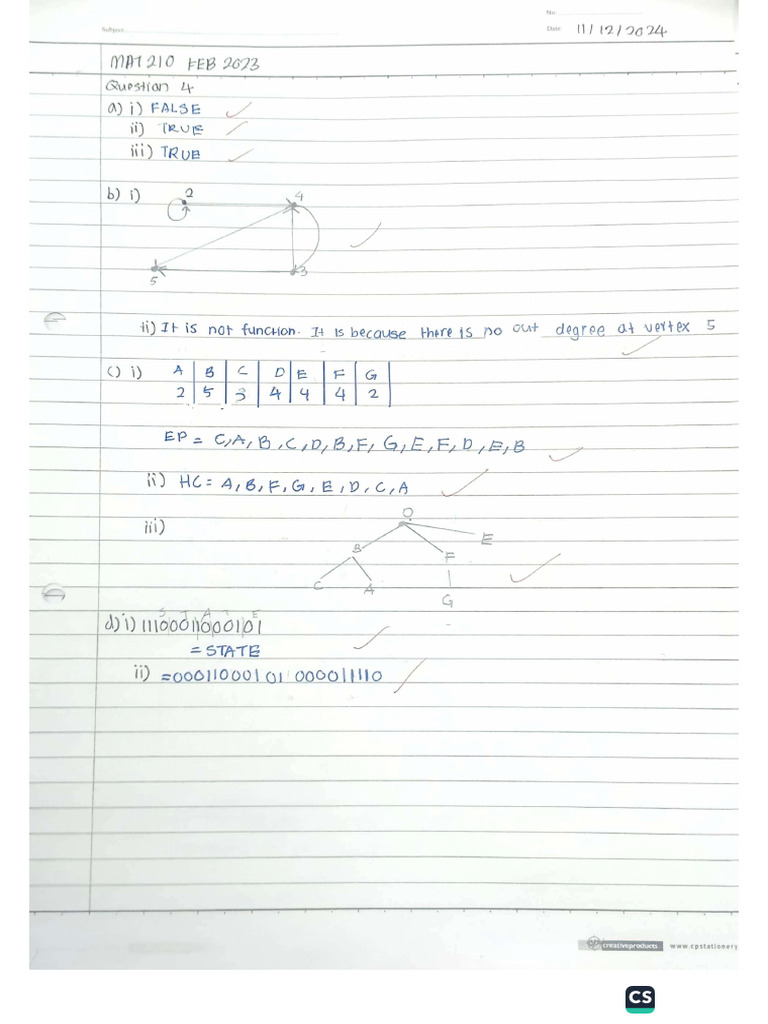 No:
Subject:
Date: 11/12/2024
MAT210 FEB 2023
Question 4
a) i) FALSE
ii) TRUE
iii) TRUE
b) i)
2 4
5 3
ii) It is not function. It is because there is no out degree at vertex 5
c) i) A B C D E F G
2 5 3 4 4 4 2
EP = C, A, B, C, D, B, F, G, E, F, D, E, B
ii) HC = A, B, F, G, E, D, C, A
iii)
B F E
C A G
S T A T E
d) i) 111000110001 01
= STATE
ii) = 000110001 01 000011110
creativeproducts www.cpstationery
CS